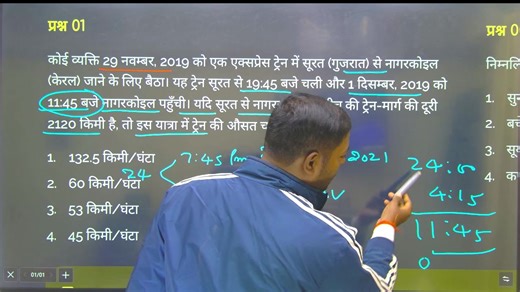 प्रश्न 01
प्रश्न
कोई व्यक्ति 29 नवम्बर, 2019 को एक एक्सप्रेस ट्रेन में सूरत (गुजरात) से नागरकोइल
(केरल) जाने के लिए बैठा। यह ट्रेन सूरत से 19:45 बजे चली और 1 दिसम्बर, 2019 को
11:45 बजे नागरकोइल पहुँची। यदि सूरत से की ट्रेन-मार्ग की दूरी
2120 किमी है, तो इस यात्रा में ट्रेन की औसत
1. 132.5 किमी/घंटा
2. 60 किमी/घंटा
3. 53 किमी/घंटा
4. 45 किमी/घंटा
24
7:45 Pm
2021
24:00
4:15
11:45
0
1.
2.
3.
4.
01/01